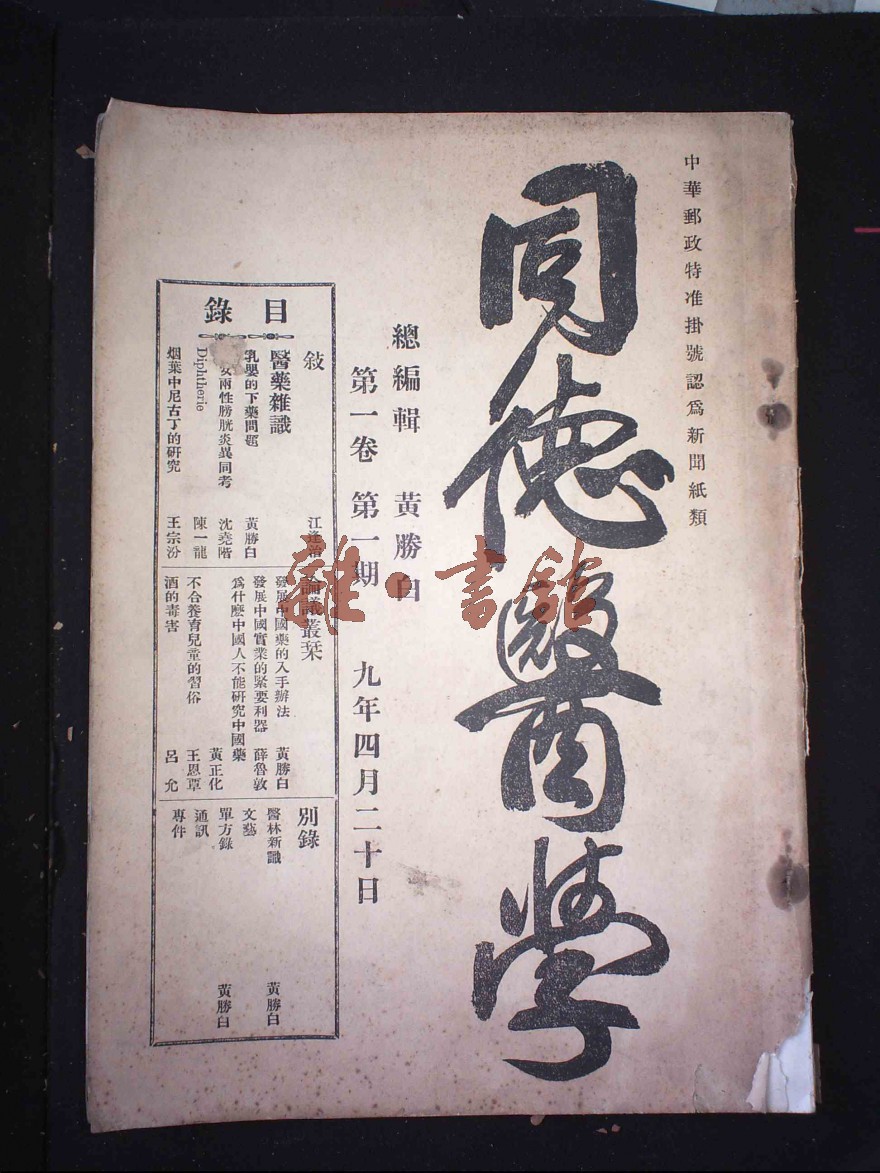 中華郵政特准掛號認爲新聞紙類
同德醫學
總編輯 黃勝白
第一卷 第一期 九年四月二十日
目錄
敍 江逢治
醫藥雜識
乳嬰的下藥問題 黃勝白
女兩性膀胱炎異同考 沈堯階
Diphtherie 陳一龍
烟葉中尼古丁的研究 王宗汾
論議叢栞
發展中國藥的入手辦法 黃勝白
發展中國實業的緊要利器 薛魯敦
爲什麽中國人不能研究中國藥 黃正化
不合養育兒童的習俗 王恩覃
酒的毒害 呂允
別錄
醫林新識 黃勝白
文藝
單方錄 黃勝白
通訊
專件
雜·書館